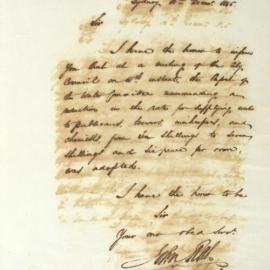 Sydney 10th Decr 1845.
Sir
I have the honor to inform
You that at a meeting of the City
Council on 10th instant, the Report of
the Water Committee recommending a
reduction in the rate for supplying water
to publicans, brewers, and
chemists, from ten Shillings to seven
shillings and six pence per room,
was adopted.
I have the honor to be
Sir
Your mo obed Servt
John Rae